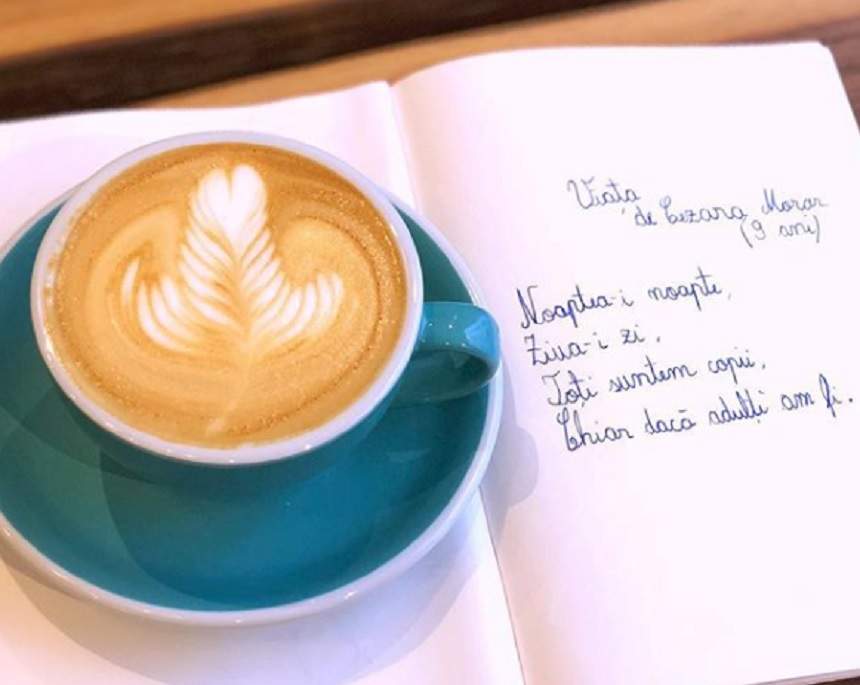 Viața
de Cezara Morar
(9 ani)
Noaptea-i noapte,
Ziua-i zi.
Toți suntem copii,
Chiar dacă adulți am fi.